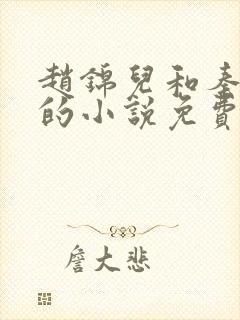 趙錦兒和秦
的小說免費
詹大悲